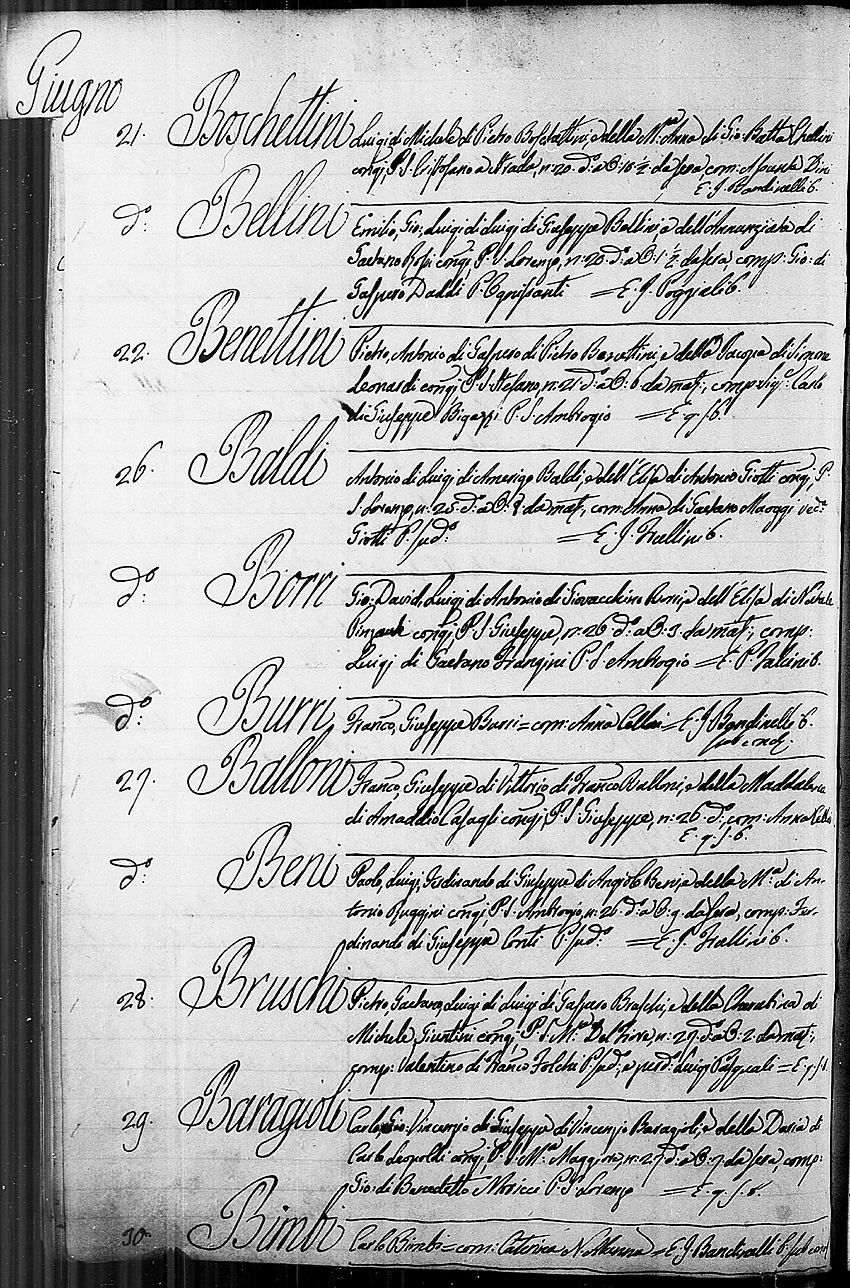 Giugno
21. Boschettini Luigi di Michele di Pietro Boschettini, e della Mª Anna di Gio: Batta Chellini
congi, P. S. Cristofano a Strada, n: 20. dº: a O: 10 ½ da sera, com: Assunta Dini
E. J. Bandinelli 6.
dº: Bellini Emilio, Gio:, Luigi di Luigi di Giuseppe Bellini, e dell'Annunziata di
Gaetano Rossi congi, P. S. Lorenzo, n: 20 dº: a O: 1 ½ da sera, comp: Gio: di
Gaspero Daddi P. Ognissanti = E. J. Poggiali 6.
22. Benettini Pietro, Antonio di Gaspero di Pietro e della Jacopa di Simone
Leonardi congi, P. S. Stefano, n: 21 dº: a O: 6 da matt:, comp: Sigr: Carlo
di Giuseppe Bigazzi P. S. Ambrogio = E. q. s. 6.
26. Baldi Antonio di Luigi di Amerigo Baldi, e dell'Elisa di Antonio Giotti congi, P.
S. Lorenzo, n: 25. dº: a O: 8 da matt, com: Anna di Gaetano vedª:
Giotti P. sudº: = E. J. 6.
dº: Borri Gio: David, Luigi di Antonio di Giovacchino Borri, e dell'Elisa di Natale
Pinzauti congi, P. S. Giuseppe, n: 26 dº: a O: 3. da matt; comp:
Luigi di Gaetano Frangini P. S. Ambrogio = E. P. 6.
dº: Burri Franco, Giuseppe Burri = com: Anna Cellai = E. J. Bandinelli 6.
sub cond:
27. Balloni Franco, Giuseppe di Vittorio di Franco Balloni, e della Maddalena
di Amaddio Casagli congi, P. S. Giuseppe, n: 26 dº:, com: Anna
E. q. s. 6.
dº: Beni Paolo, Luigi, Ferdinando di Giuseppe di Angiolo Beni, e della Mª di An-
tonio Ruggini congi, P. S. Ambrogio, n: 26 dº: a O: 9. da sera, comp: Fer-
dinando di Giuseppe Conti P. sudº: = E. J. 6.
28. Bruschi Pietro, Gaetano, Luigi di Luigi di Gaspero Bruschi, e della Cherubina di
Michele Giuntini congi, P. S. Mª Del Fiore, n: 27 dº: a O: 2. da matt:,
comp: Valentino di Franco Folchi P. sudº, e per dº Luigi Pasquali = E. q. s. 6.
29. Baragioli Carlo, Gio: Vincenzo di Giuseppe di Vincenzo Baragioli, e della Daria di
Carlo Leopoldi congi, P. S. Mª Maggire, n: 27 dº: a O: 7. da sera, comp:
Gio: di Benedetto P. S. Lorenzo = E. q. s. 6.
30. Bimbi Carlo Bimbi = com: Caterina = E. J. Bandinelli 6. sub cond